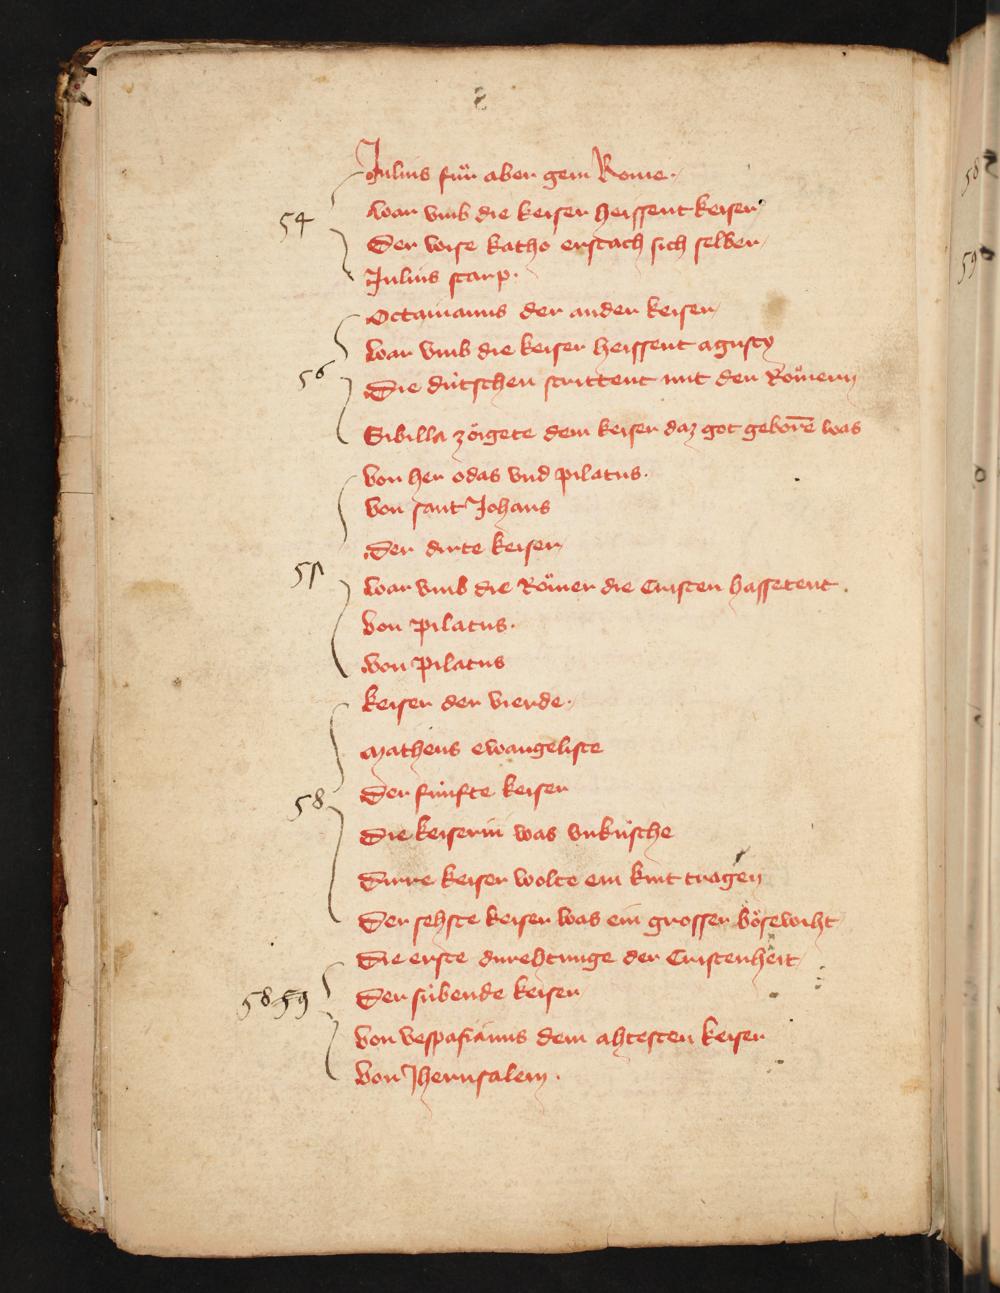 Julius für aber gein Rome.
54
war vmb die keiser heissent keiser
Der wise katho erstach sich selber
Julius starp.
Octauianus der ander keiser
war vmb die keiser heissent agusty
56
Die dütschen strittent mit den Römern
Sibilla zöigete dem keiser daz got geborē was
von her odas vnd pilatus.
von sant Johans
Der dirte keiser
war vmb die Römer die Cristen hassetent.
von pilatus.
von pilatus
keiser der vierde.
Matheus ewangeliste
Der fünfte keiser
58
Die keiserin was vnküsche
Dirre keiser wolte ein kint tragen
Der sehste keiser was ein grosser bösewiht
Die erste durehtunge der Cristenheit
Der sübende keiser
58 59
von vespasianus dem ahtesten keiser
von Jherusalem.
58
59